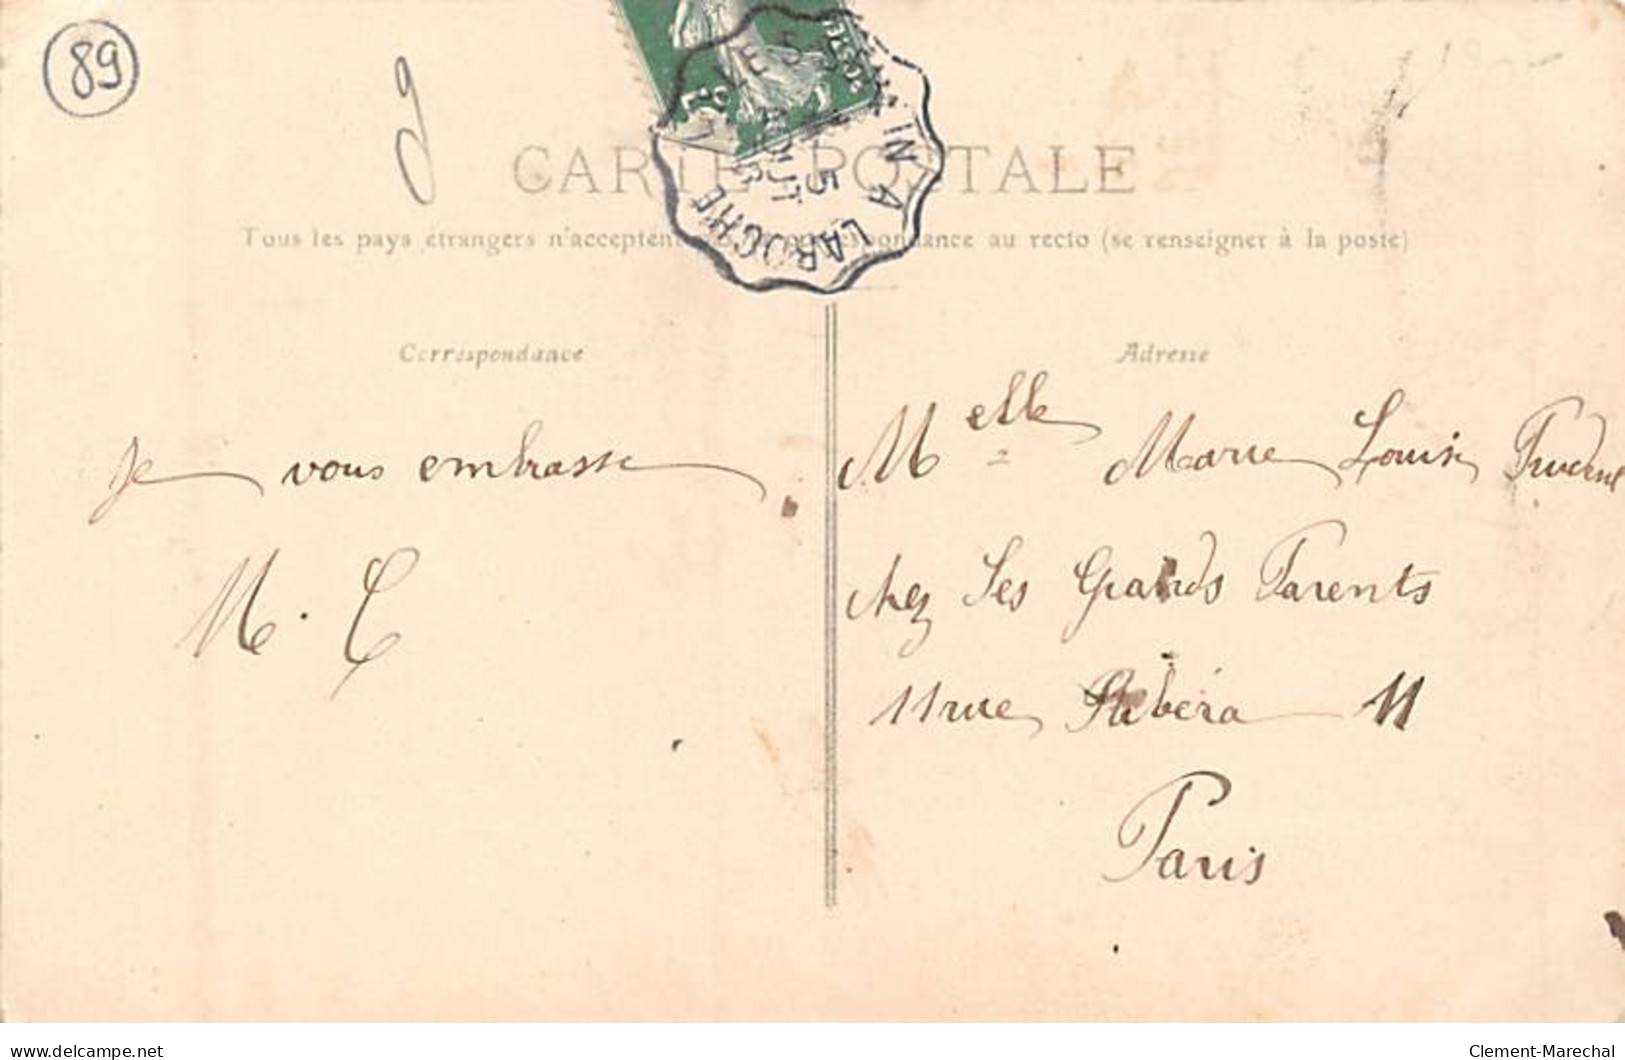 89
CARTE POSTALE
Tous les pays étrangers n'acceptent correspondance au recto (se renseigner à la poste)
A LAROCHE
5
AOUT
Correspondance
Adresse
Je vous embrasse
M. C
Melle Marie Louise
chez Ses Grands Parents
11 rue Ribéra 11
Paris
delcampe.net
Clement-Marechal